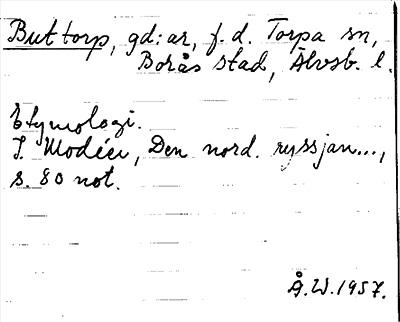 Buttorp, gd:ar, f.d. Torpa sn,
Borås stad, Älvsb. l.
Etymologi.
I. Modéer, Den nord. ryssjan...,
s. 80 not.
Å.W. 1957.